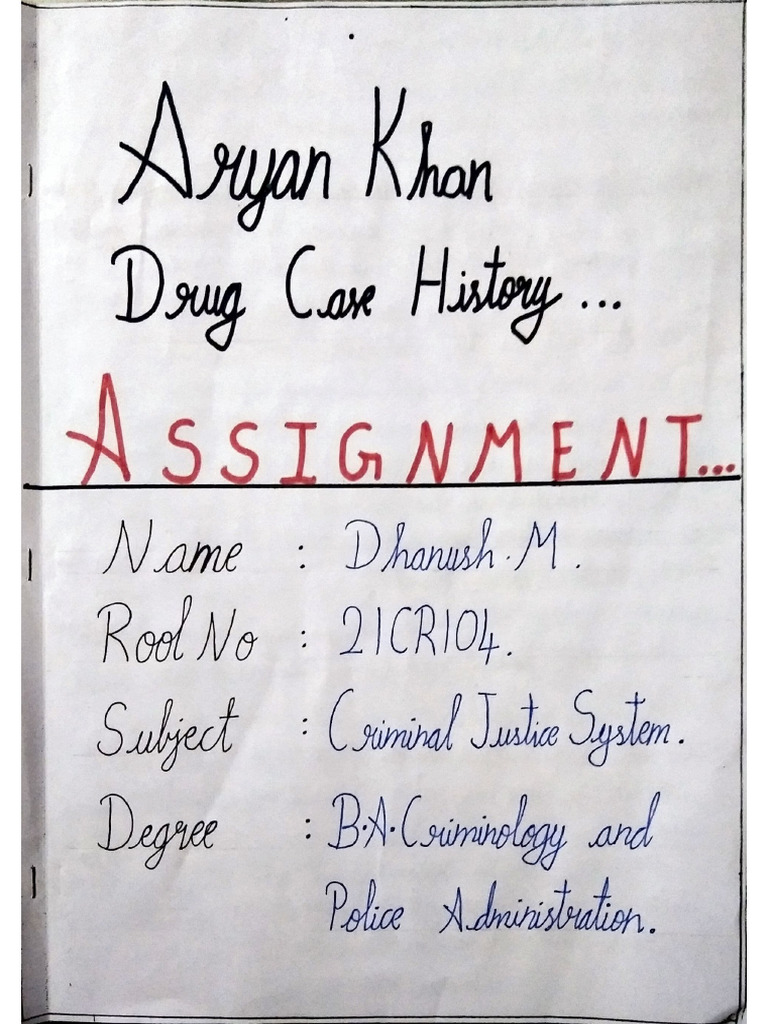 Aryan Khan
Drug Case History ...
ASSIGNMENT...
Name : Dhanush. M.
Rool No : 21CR104.
Subject : Criminal Justice System.
Degree : B.A. Criminology and
Police Administration.